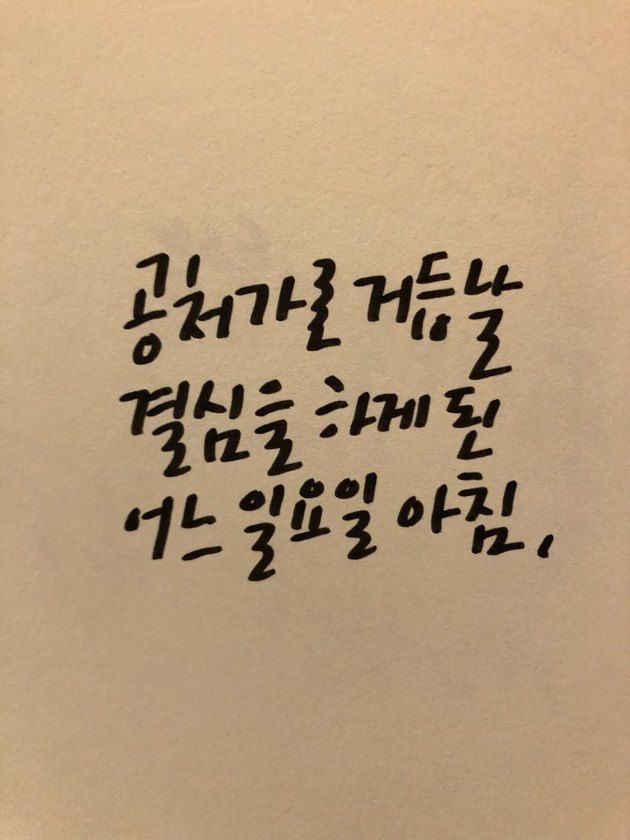 공처가로 거듭날
결심을 하게 된
어느 일요일 아침,